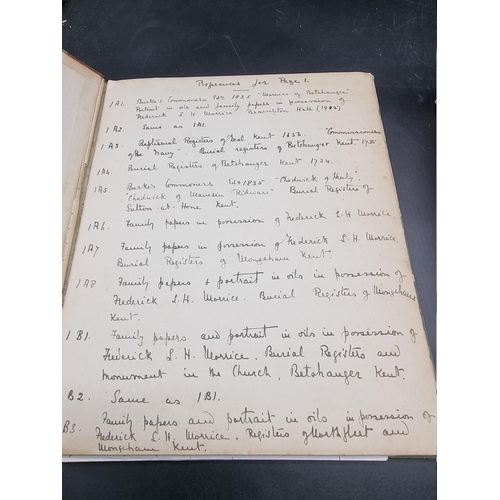 References for Page 1.
1A1. Burke's Commoners Edn 1835 "Morrice of Betshanger"
Portrait in oils and family papers in possession of
Frederick L. H. Morrice Brampton Hall (1923)
1A2. Same as 1A1.
1A3. Baptismal Registers of Deal Kent 1653. "Commissioners
of the Navy" Burial registers of Betshanger Kent
1A4. Burial Registers of Betshanger Kent 1734.
1A5. Burke's Commoners Edn 1835 "Chadwick of Healy"
"Chadwick of Mavesin Ridware" Burial Registers of
Sutton at Hone Kent.
1A6. Family papers in possession of Frederick L. H. Morrice.
1A7 Family papers in possession of Frederick L. H. Morrice.
Burial Registers of Mongeham Kent.
1A8 Family papers & portrait in oils in possession of
Frederick L. H. Morrice. Burial Registers of Mongeham
Kent.
1B1. Family papers and portrait in oils in possession of
Frederick L. H. Morrice. Burial Registers and
monument in the Church, Betshanger Kent.
B2. Same as 1B1.
B3. Family papers and portrait in oils in possession of
Frederick L. H. Morrice. Registers of Northfleet and
Mongeham Kent.